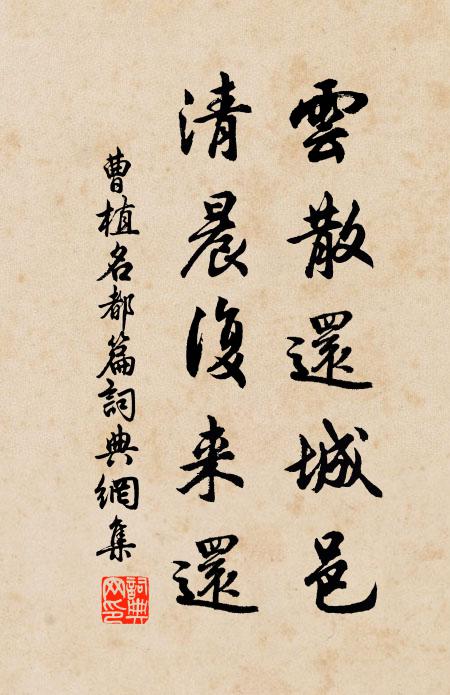 雲散還城邑
清晨復来還
曹植名都篇詞典網集
詞典
网印